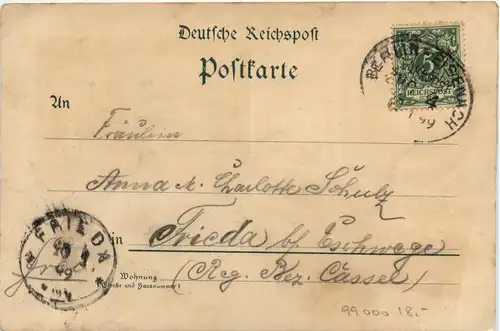 Deutsche Reichspost
Postkarte
5
REICHSPOST
BERLIN EISENACH
4
99
An
Fräulein
Anna u. Charlotte Schulz
in Frieda bf. Eschwege
FRIEDA
Wohnung
(Straße und Hausnummer)
(Reg. Bez. Cassel)
99000 18.-